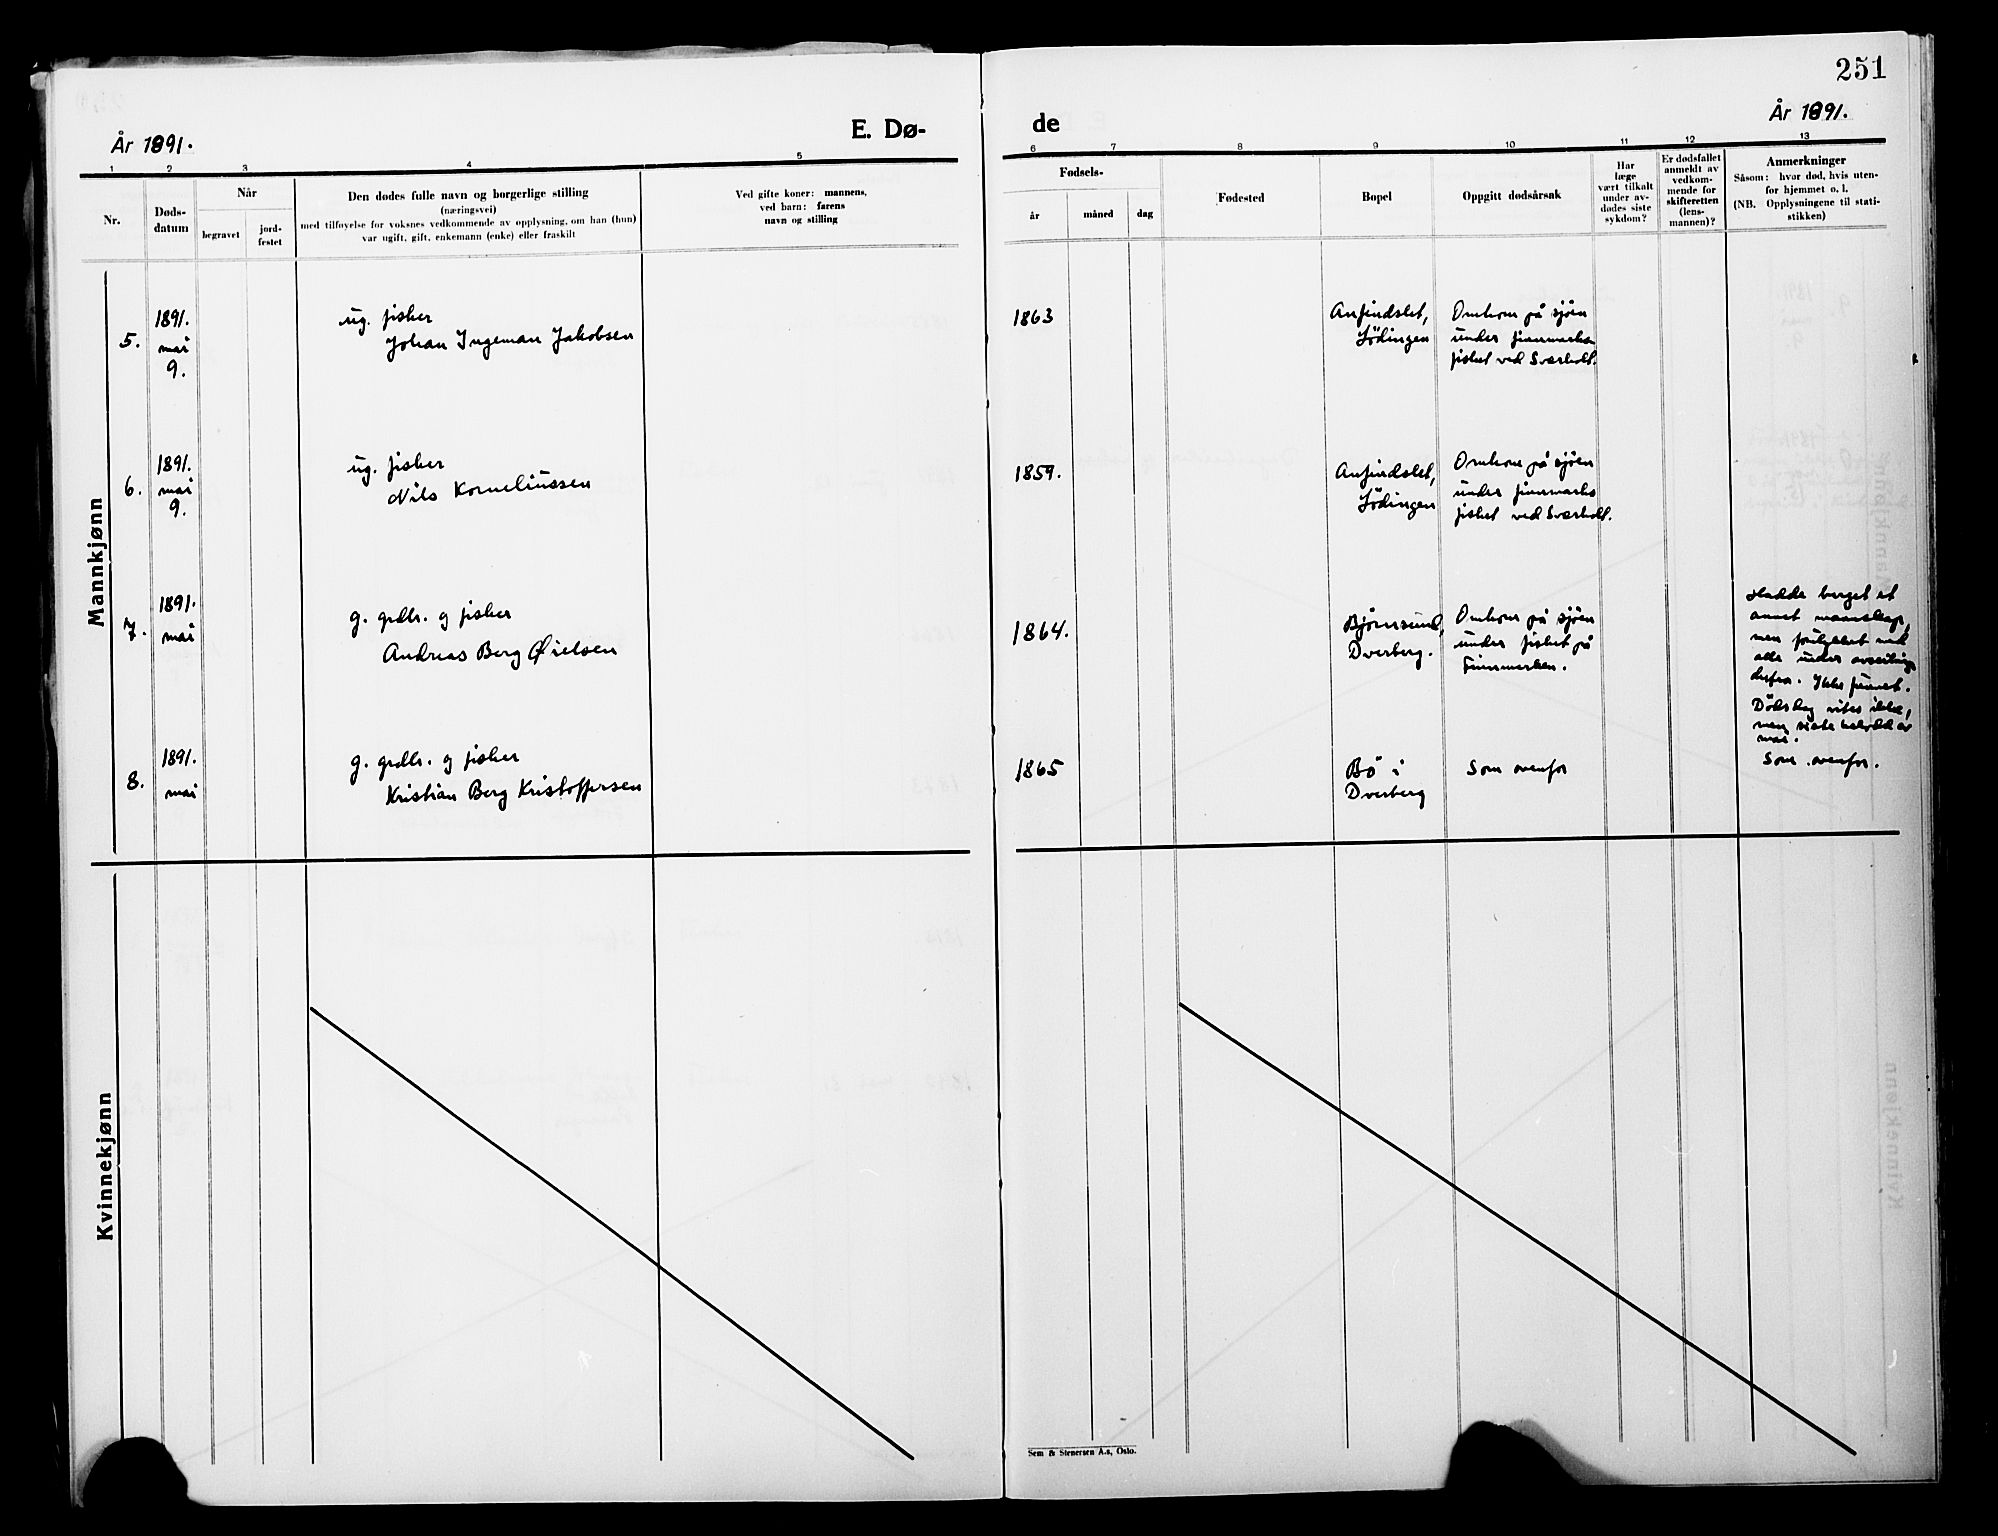 251
År 1891.
E. Dø-
de
År 1891.
1 2 3 4 5 6 7 8 9 10 11 12 13
Nr.
Døds-
datum
Når
begravet
jord-
festet
Den dødes fulle navn og borgerlige stilling
(næringsvei)
med tilføyelse for voksnes vedkommende av opplysning, om han (hun)
var ugift, gift, enkemann (enke) eller fraskilt
Ved gifte koner: mannens,
ved barn: farens
navn og stilling
Fødsels-
år
måned
dag
Fødested
Bopel
Oppgitt dødsårsak
Har
læge
vært tilkalt
under av-
dødes siste
sykdom?
Er dødsfallet
anmeldt av
vedkom-
mende for
skifteretten
(lens-
mannen)?
Anmerkninger
Såsom: hvor død, hvis uten-
for hjemmet o. l.
(NB. Opplysningene til stati-
stikken)
Mannkjønn
5.
1891.
mai
9.
ug. fisker
Johan Ingeman Jakobsen
1863
Anfindslet,
Lödingen
Omkom på sjöen
under finnmarks
fisket ved Sværholt.
6.
1891.
mai
9.
ug. fisker
Nils Korneliussen
1859.
Anfindslet,
Lödingen
Omkom på sjöen
under finnmarks
fisket ved Sværholt.
7.
1891.
mai
g. grdbr. og fisker
Andreas Berg Øielsen
1864.
Bjørnsund,
Dverberg.
Omkom på sjöen
under fisket på
Finnmarken.
Hadde berget et
annet mannskap,
men forulykket med
alle under avseiling
derfra. Ikke funnet.
Dödsdag vites ikke,
men siste halvdel av
mai.
8.
1891.
mai
g. grdbr. og fisker
Kristian Berg Kristoffersen
1865
Bö i
Dverberg
Som ovenfor
Som ovenfor.
Kvinnekjønn
Sem & Stenersen A.s, Oslo.